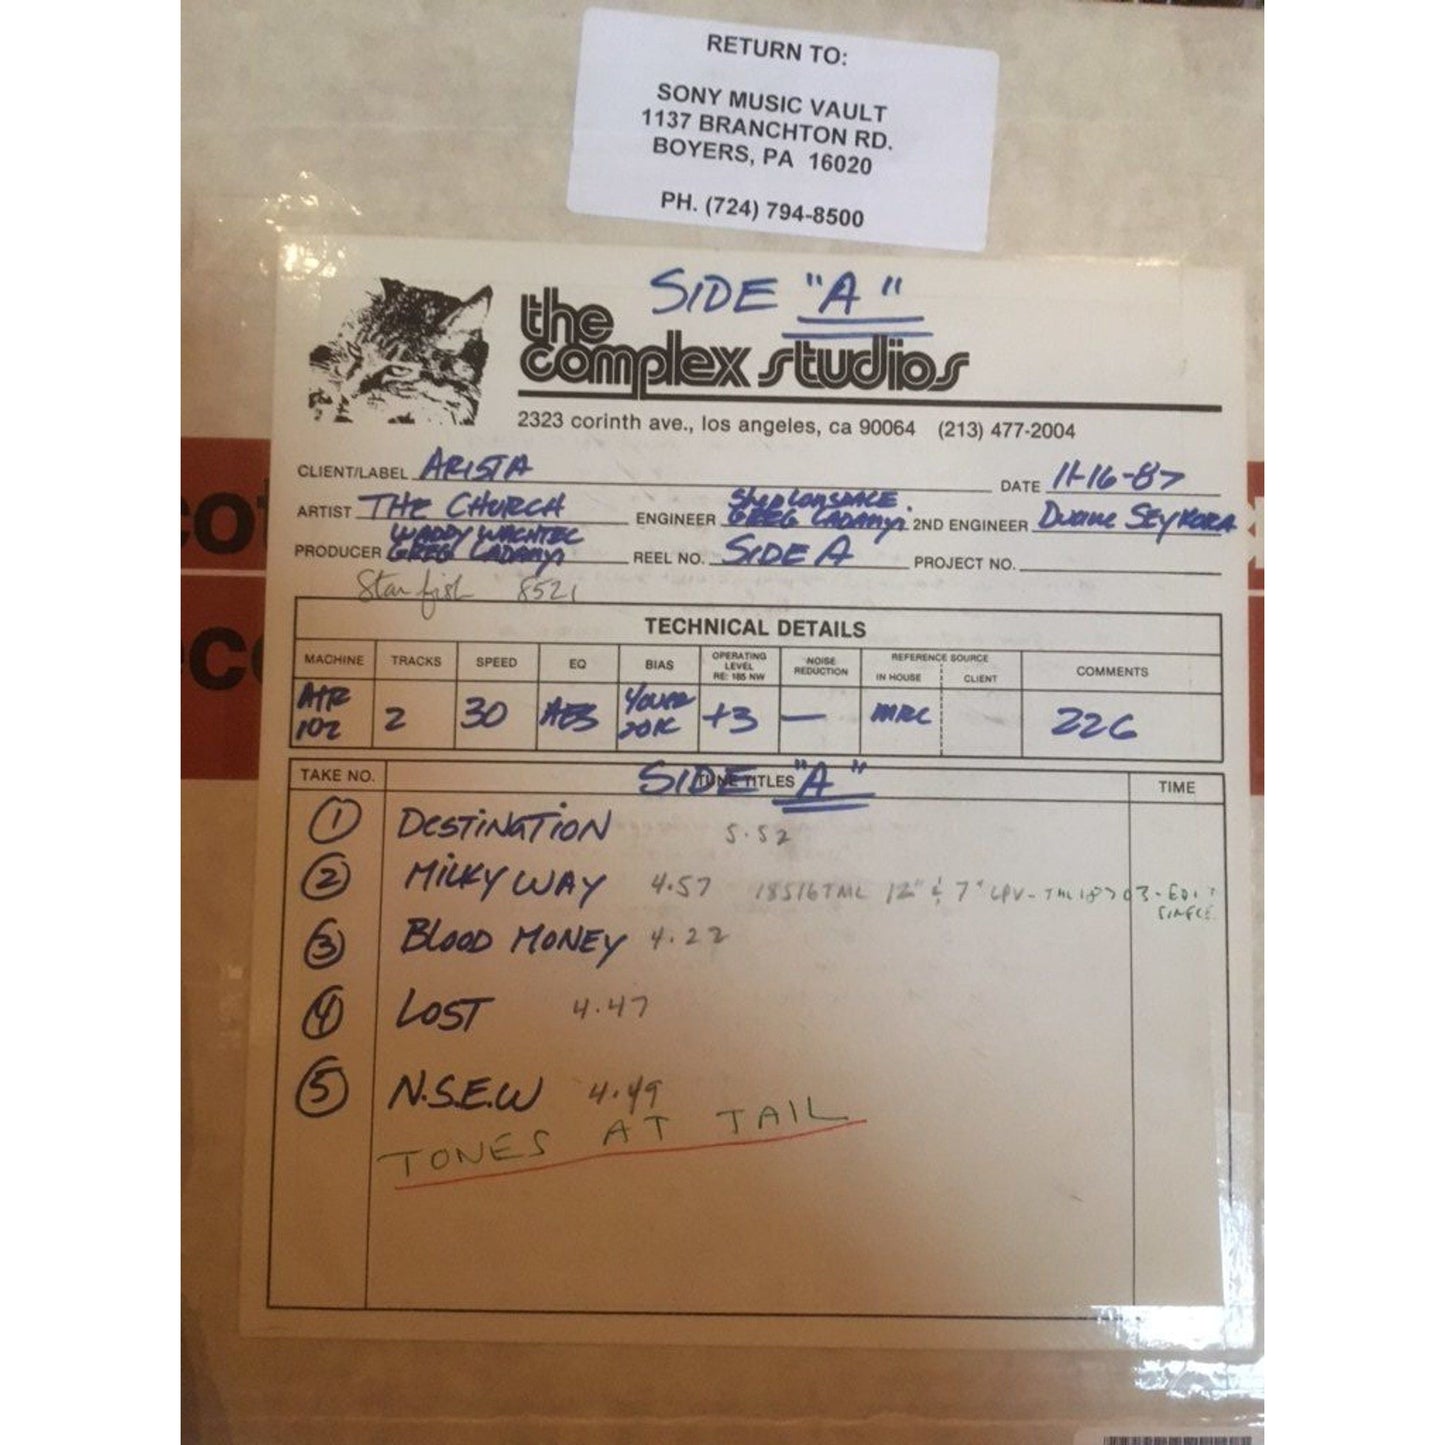 RETURN TO:
SONY MUSIC VAULT
1137 BRANCHTON RD.
BOYERS, PA 16020
PH. (724) 794-8500
SIDE "A"
the
complex studios
2323 corinth ave., los angeles, ca 90064 (213) 477-2004
CLIENT/LABEL ARISTA DATE 11-16-87
Shep Lonsdale
ARTIST THE CHURCH ENGINEER GREG LADANYI 2ND ENGINEER DUANE SEYKORA
WADDY WACHTEL
PRODUCER GREG LADANYI REEL NO. SIDE A PROJECT NO.
Starfish 8521
TECHNICAL DETAILS
MACHINE TRACKS SPEED EQ BIAS OPERATING LEVEL RE: 185 NW NOISE REDUCTION REFERENCE SOURCE IN HOUSE CLIENT COMMENTS
ATR 102 2 30 AES 20K +3 — MRL 226
TAKE NO. TUNE TITLES SIDE "A" TIME
1 DESTINATION 5.52
2 MILKY WAY 4.57 18516TML 12" & 7" LPV- TML18703-EDIT
SINGLE
3 BLOOD MONEY 4.22
4 LOST 4.47
5 N.S.E.W 4.49
TONES AT TAIL